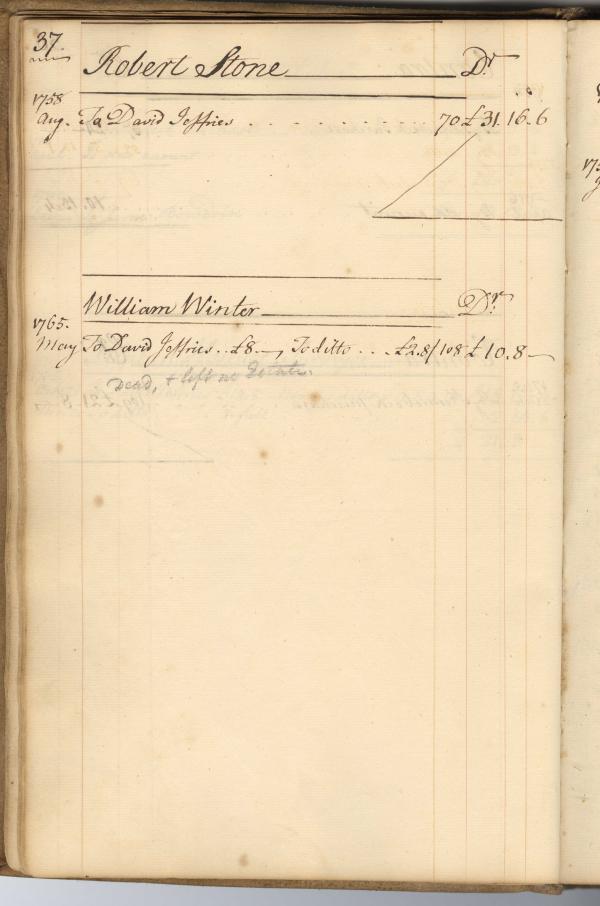 37.
Robert Stone Dr
1758
Aug. To David Jeffries . . . . . . . . . . 70 £31.16.6
William Winter Dr
1765.
May To David Jeffries . . £8. —, To ditto . . . £2.8/ 108 £10.8 —
Dead, & left no Estate.